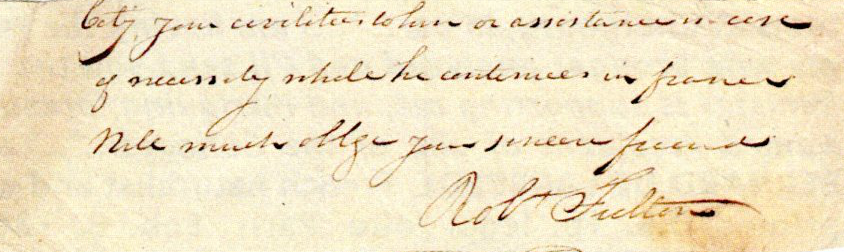 City, your civilities to him or assistance in case
of necessity while he continues in france
Will much oblge your sincere friend
Robt Fulton